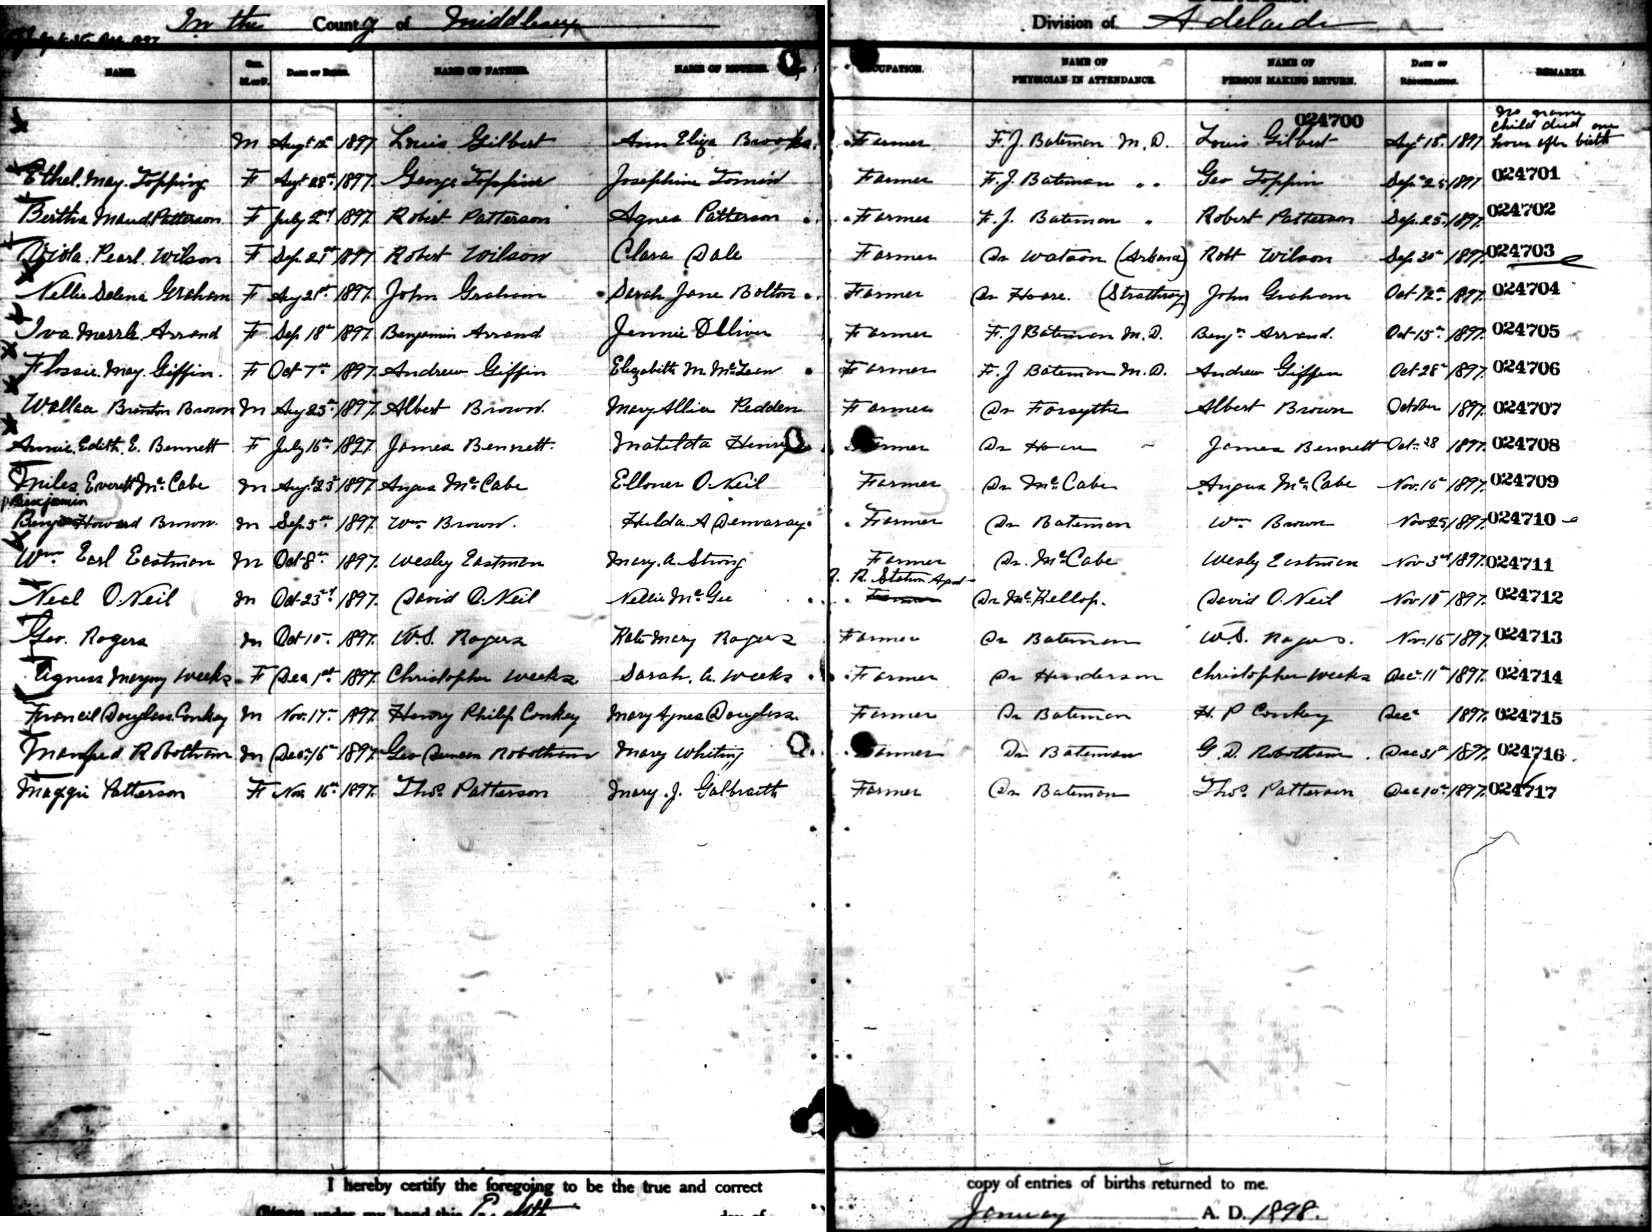 In the County of Middlesex Division of Adelaide
NAME. Sex. M. or F. DATE OF BIRTH. NAME OF FATHER. NAME OF MOTHER. OCCUPATION. NAME OF PHYSICIAN IN ATTENDANCE. NAME OF PERSON MAKING RETURN. DATE OF REGISTRATION. REMARKS.
024700 No name child died one hour after birth
M Augt 12th 1897 Louis Gilbert Ann Eliza Brooks Farmer F. J. Bateman M. D. Louis Gilbert 1897
Ethel May Topping F Augt 28th 1897 George Topping Josephine Farmer F. J. Bateman " " Geo Topping Sept 25 1897 024701
Bertha Maud Patterson F July 2nd 1897 Robert Patterson Agnes Patterson Farmer F. J. Bateman " Robert Patterson Sep. 25 1897 024702
Viola Pearl Wilson F Sep. 1897 Robert Wilson Clara Dale Farmer Dr Watson (Arkona) Robt Wilson Sep 30th 1897 024703
Nellie Selena Graham F Aug 21st 1897 John Graham Sarah Jane Bolton Farmer Dr Hoare. (Strathroy) John Graham Oct 12th 1897 024704
Iva Merrle Arrand F Sep 18th 1897 Benjamin Arrand Jennie Farmer F. J Bateman M. D. Benjn Arrand. Oct 15th 1897 024705
Flossie May Giffin. F Oct 7th 1897 Andrew Giffin Elizabeth M McLean Farmer F. J Bateman M. D. Andrew Giffin Oct 28th 1897 024706
Brown M Aug 25th 1897 Albert Brown. Mary Pedden Farmer Dr Forsythe Albert Brown October 1897 024707
Annie Edith E. Bennett F July 16th 1897 James Bennett. Matilda Farmer Dr Hoare James Bennett Oct. 28 1897 024708
Miles Everett McCabe M Augt 23rd 1897 Angus McCabe Elloner O.Neil Farmer Dr McCabe Angus McCabe Nov. 15th 1897 024709
Benjamin
Benj Howard Brown. M Sep. 5th 1897 Wm Brown. Hulda A Demaray Farmer Dr Bateman Wm Brown Nov 25 1897 024710
Wm Earl Eastman M Oct 8th 1897 Wesley Eastman Mary. A. Strong Farmer Dr. McCabe Wesley Eastman Nov 3rd 1897 024711
R. R. Station Agent
Neal O.Neil M Oct 23rd 1897. David O.Neil Nellie McGee Farmer Dr McKellop. David O.Neil 1897 024712
Geo. Rogers M Oct 10th 1897. W.S. Rogers Kate Mary Rogers Farmer Dr Bateman W.S. Rogers. Nov. 15 1897 024713
Agness Weeks F Dec 1st 1897 Christopher Weeks Sarah. A. Weeks Farmer Dr Henderson Christopher Weeks Dec. 11th 1897 024714
Francil Douglass Conkey M Nov. 17th 1897 Henry Philip Conkey Mary Agnes Douglass. Farmer Dr Bateman H. P Conkey Dec 1897 024715
Manfred Robotham M Dec. 16th 1897 Geo Duncan Robotham Mary Whiting Farmer Dr Bateman G. D. Robotham Dec 31st 1897 024716
Maggie Patterson F Nov 16th 1897 Thos. Patterson Mary. J. Galbraith Farmer Dr Bateman Thos. Patterson Dec 10th 1897 024717
I hereby certify the foregoing to be the true and correct copy of entries of births returned to me.
Given under my hand this day of January A. D. 1898.